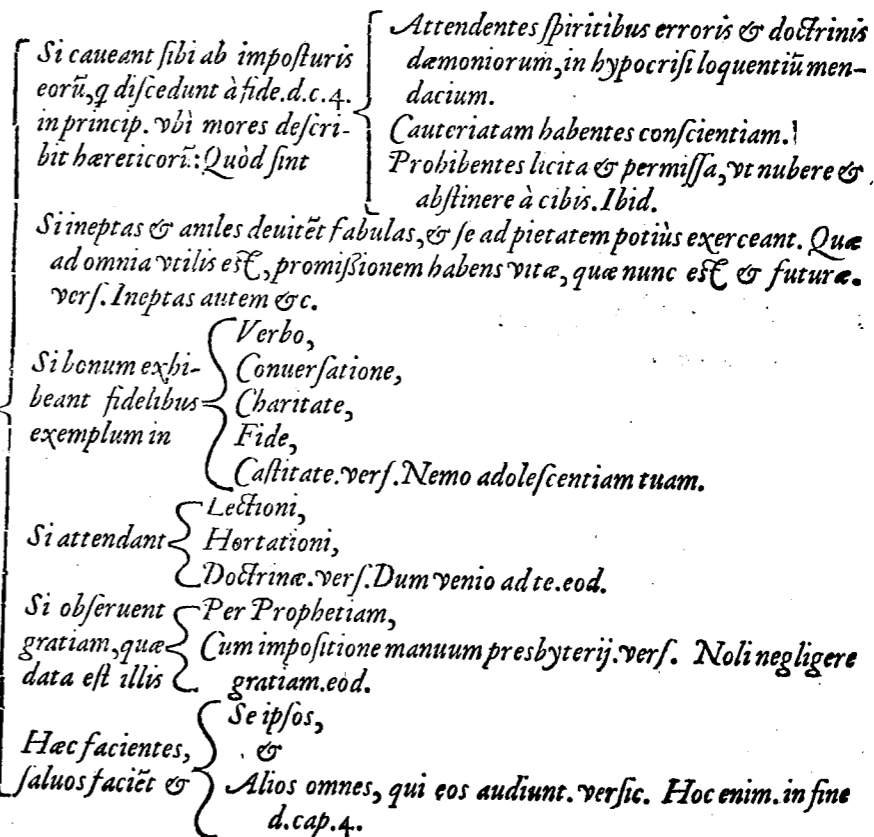 Si caueant ſibi ab impoſturis
eorũ, q diſcedunt à fide. d. c. 4.
in princip. vbì mores deſcri-
bit hæreticorũ: Quòd ſint
Attendentes ſpiritibus erroris & doctrinis
dæmoniorum, in hypocriſi loquentiũ men-
dacium.
Cauteriatam habentes conſcientiam.
Prohibentes licita & permiſſa, vt nubere &
abſtinere à cibis. Ibid.
Si ineptas & aniles deuitẽt fabulas, & ſe ad pietatem potiùs exerceant. Quæ
ad omnia vtilis eſt, promißionem habens vitæ, quæ nunc eſt & futuræ.
verſ. Ineptas autem &c.
Si bonum exhi-
beant fidelibus
exemplum in
Verbo,
Conuerſatione,
Charitate,
Fide,
Caſtitate. verſ. Nemo adoleſcentiam tuam.
Si attendant
Lectioni,
Hortationi,
Doctrinæ. verſ. Dum venio ad te. eod.
Si obſeruent
gratiam, quæ
data eſt illis
Per Prophetiam,
Cum impoſitione manuum presbyterij. verſ. Noli negligere
gratiam. eod.
Hæc facientes,
ſaluos faciẽt &
Se ipſos,
&
Alios omnes, qui eos audiunt. verſic. Hoc enim. in fine
d. cap. 4.